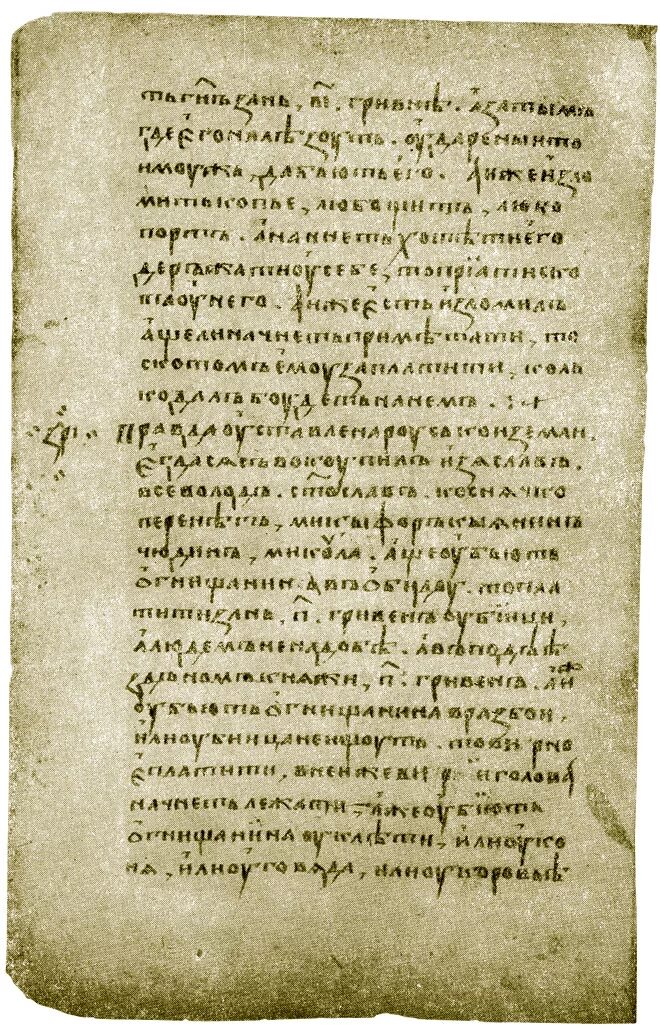 тьгн҃ъзань, в҃і. гривнѣ. азатымъ
гдеегоналѣзоуть. оудареныито
имоужь, дабьютьего. Аижеизло
митькопье, любощитъ, любо
портъ. аначнетьхотѣтиего
деръжатиоусебе, топріатиско
таоунего. Аижеестьизломилъ
ащелиначнетьпримѣтати, то
скотомъемоузаплатити, коль
кодалъбоудетьнанемъ.
Правдаоуставленароуськоиземли.
Егдасясъвокоупилъизяславъ.
всеволодъ. ст҃ославъ. коснячко
перенѣгъ, микыфоръкыянинъ
чюдинъ, микоула. ащеоубьють
огнищанинавъобидоу. топла
титизань, п҃. гривенъоубіици,
алюдемъненадобѣ. авъподъѣ
здномъкняжи, п҃. гривенъ. аиж
оубьютьогнищанинавразбои,
илиоубиицанеищоуть. товирно
еплатити, внеижевири голова
начнетьлежати, ажеоубіють
огнищанинаоуклѣти, илиоуко
ня, илиоуговяда, илиоукоровьѣ